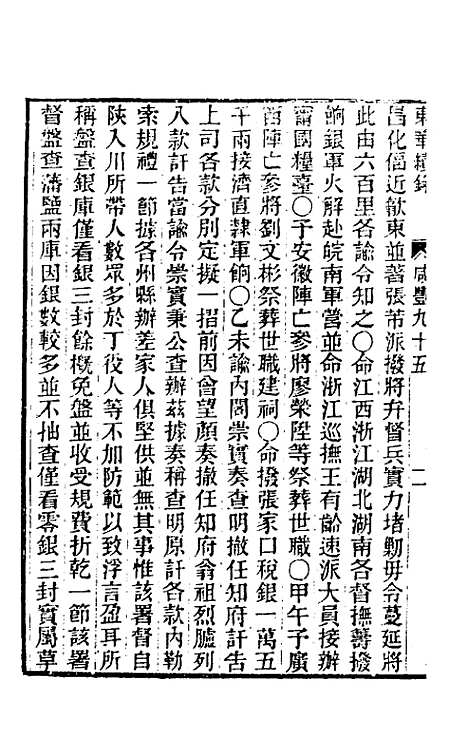 東華續錄　咸豐九十五　二
昌化偪近歙東並著張芾派撥將弁督兵實力堵勦毋令蔓延將
此由六百里各諭令知之〇命江西浙江湖北湖南各督撫籌撥
餉銀軍火解赴皖南軍營並命浙江巡撫王有齡速派大員接辦
甯國糧臺〇予安徽陣亡參將廖榮陞等祭葬世職〇甲午予廣
西陣亡參將劉文彬祭葬世職建祠〇命撥張家口稅銀一萬五
千兩接濟直隸軍餉〇乙未諭內閣崇實奏查明撤任知府訐告
上司各款分別定擬一摺前因曾望顏奏撤任知府翁祖烈臚列
八款訐告當諭令崇實秉公查辦茲據奏稱查明原訐各款內勒
索規禮一節據各州縣辦差家人俱堅供並無其事惟該署督自
陝入川所帶人數眾多於丁役人等不加防範以致浮言盈耳所
稱盤查銀庫僅看銀三封餘概免盤並收受規費折乾一節該署
督盤查藩鹽兩庫因銀數較多並不抽查僅看零銀三封實屬草